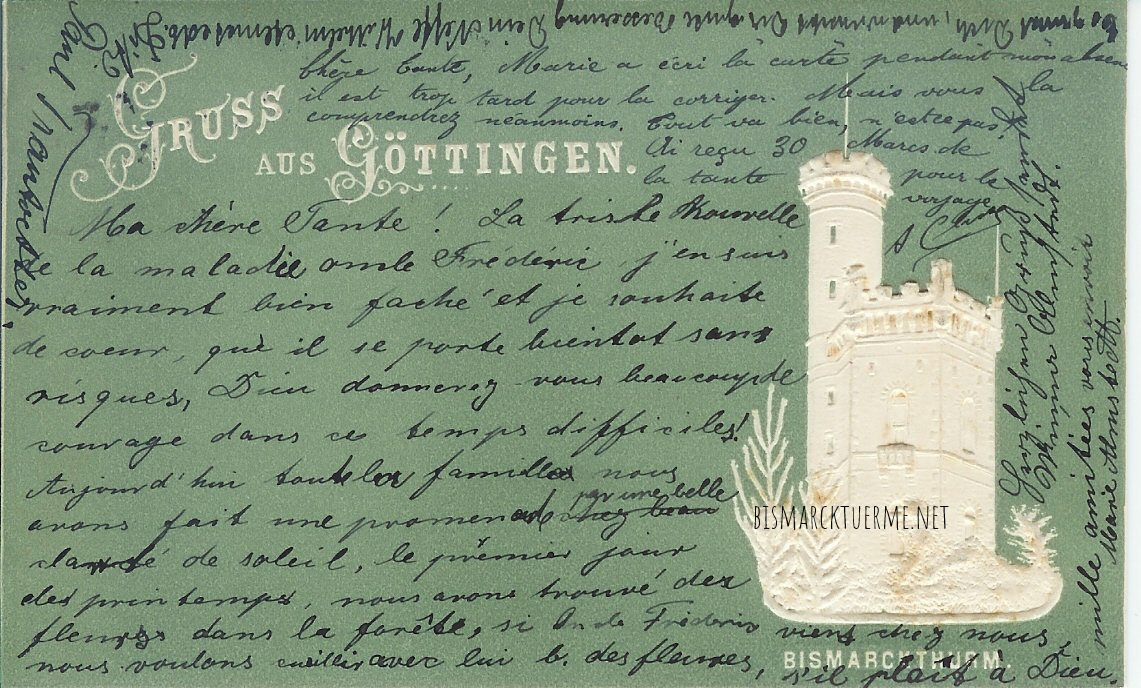 GRUSS
AUS GÖTTINGEN.
Chère tante, Marie a écri la carte pendant mon absence
il est trop tard pour la corriger. Mais vous la
comprendrez néanmoins. Tout va bien, n'est ce pas?
Ai reçu 30 Marcs de
la tante pour le
voyage
Ma chère Tante! La triste Nouvelle
de la maladie oncle Frédéric, j'en suis
vraiment bien faché et je souhaite
de coeur, que il se porte bientot sans
risques, Dieu donnerez vous beaucoup de
courage dans ce temps difficiles!
Aujourd'hui toute la famille nous
avons fait une promenade par une belle
clarté de soleil, le prêmier jour
des printemps, nous avons trouvé des
fleures dans la forête, si Oncle Frédéric viens chez nous
nous voulons cueillir avec lui b. des fleures, s'il plait à Dieu.
mille amitiées vous envoir
Marie
Herzlichen Gruß sendet
Minna
Dein Neffe Wilhelm
Fritz
Paul
BISMARCKTHURM.
BISMARCKTUERME.NET